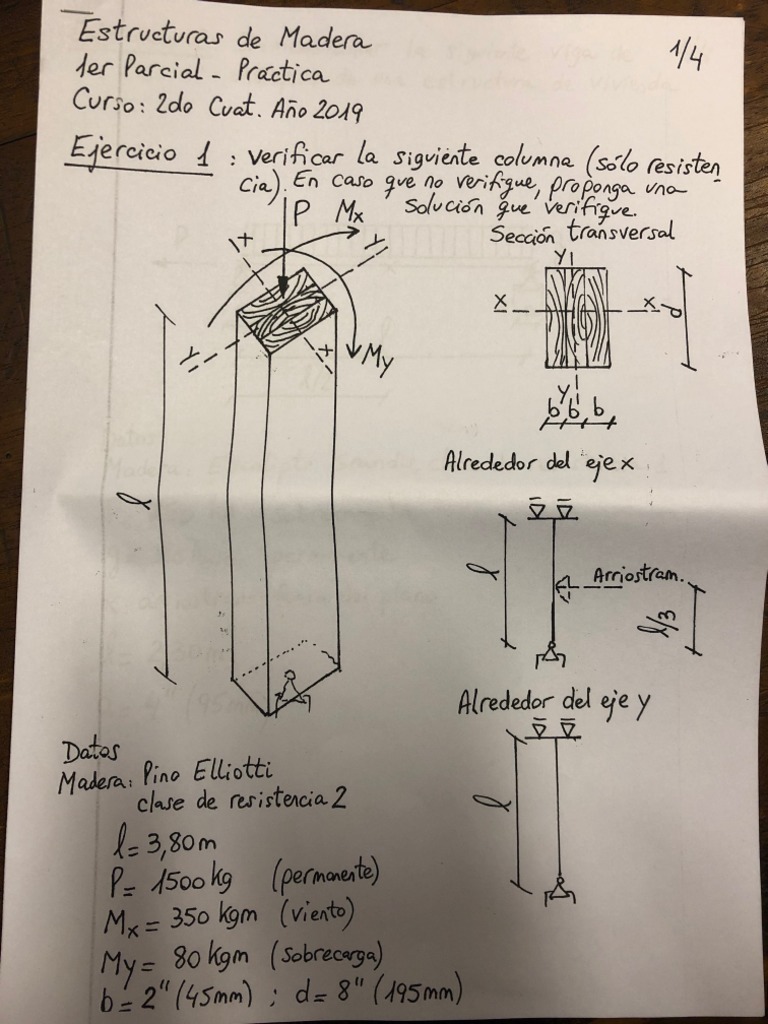 Estructuras de Madera
1/4
1er Parcial - Práctica
Curso: 2do Cuat. Año 2019
Ejercicio 1 : verificar la siguiente columna (sólo resisten
cia). En caso que no verifique, proponga una
solución que verifique.
P
Mx
Sección transversal
x
y
y
x
My
l
y
x
x
d
y
b b b
Alrededor del eje x
l
Arriostram.
l/3
Alrededor del eje y
l
Datos
Madera: Pino Elliotti
clase de resistencia 2
l = 3,80m
P = 1500 kg (permanente)
Mx = 350 kgm (viento)
My = 80 kgm (sobrecarga)
b = 2" (45mm) ; d = 8" (195mm)